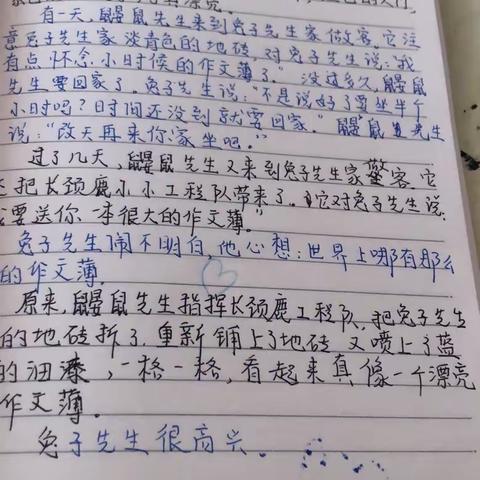 有一天,鼹鼠先生来到兔子先生家做客。它注
意兔子先生家淡青色的地砖,对兔子先生说:"我
有点怀念小时候的作文薄了。"没过多久,鼹鼠
先生要回家了。兔子先生说:"不是说好了要坐半个
小时吗?时间还没到就要回家。"鼹鼠先生
说:"改天再来你家坐吧。"
过了几天,鼹鼠先生又来到兔子先生家做客。它
还把长颈鹿小小工程队带来了。它对兔子先生说:
我要送你一本很大的作文薄。"
兔子先生闹不明白,他心想:世界上哪有那么
的作文薄。
原来,鼹鼠先生指挥长颈鹿工程队,把兔子先生
的地砖拆了,重新铺上了地砖又喷上了蓝
的油漆,一格一格,看起来真像一个漂亮
作文薄。
兔子先生很高兴。